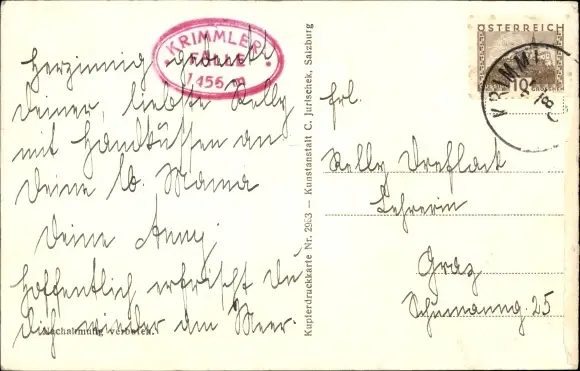 Herzinnig gedenkt
Deiner, liebste Nelly
mit Handküssen an
Deine lb. Mama
Deine Anny.
Hoffentlich erfrischt Du
Dich wieder am Meer.
Nachahmung verboten.
KRIMMLER
FÄLLE
1456 m
Kupferdruckkarte Nr. 2963 — Kunstanstalt C. Jurischek, Salzburg
ÖSTERREICH
10
GROSCHEN
KRIMML
Frl.
Nelly
Lehrerin
Graz
25